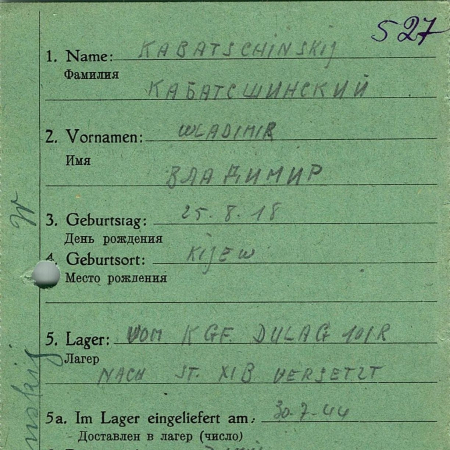 527
1. Name: KABATSCHINSKIJ
Фамилия
КАБАТСШИНСКИЙ
2. Vornamen: WLADIMIR
Имя
ВЛАДИМИР
3. Geburtstag: 25.8.18
День рождения
4. Geburtsort: KIJEW
Место рождения
5. Lager: VOM KGF. DULAG 101R
Лагер
NACH ST. XIB VERSETZT
5a. Im Lager eingeliefert am: 30.7.44
- Доставлен в лагер (число)